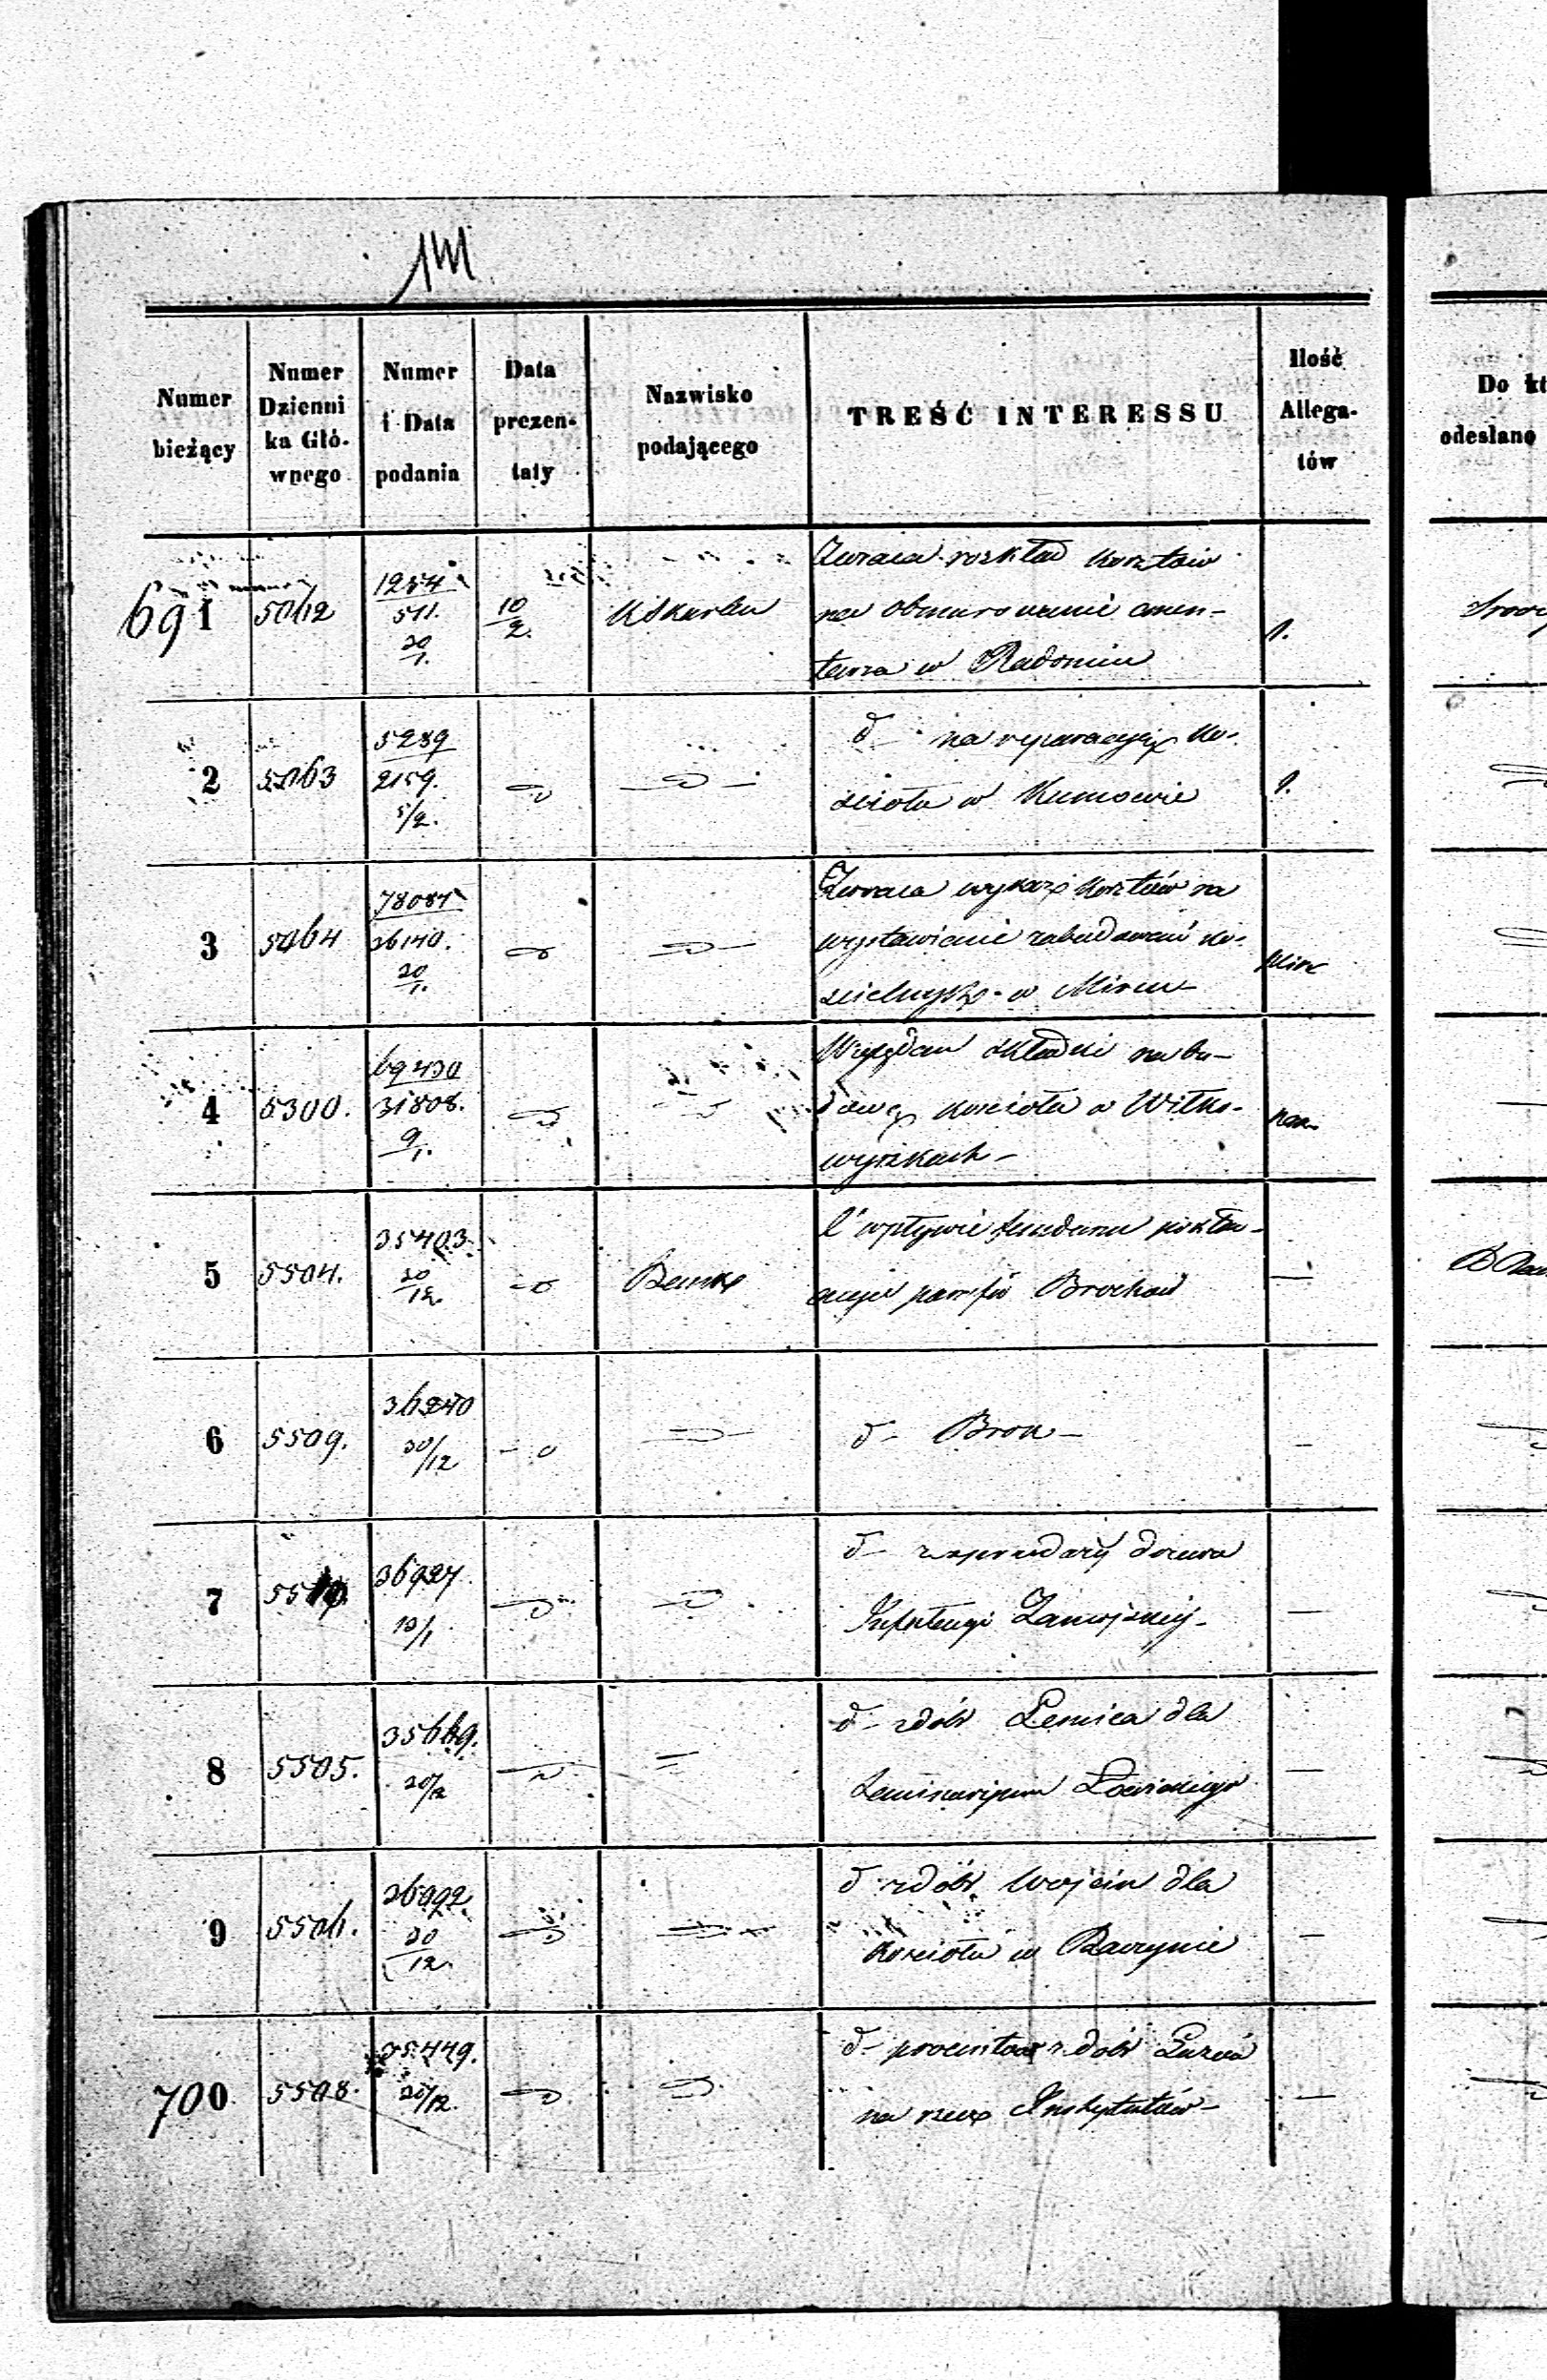 Numer bieżący
Numer Dziennika Głównego
Numer i Data podania
Data prezentaty
Nazwisko podającego
TREŚĆ INTERESSU
Ilość Allegatów
Do kt
odesłano
691
5062
1254
511.
20/1.
10/2.
K S Karbu
Zwraca rozkład kosztów
na obmurowanie cmen-
tarza w Radomiu
1.
2
5063
5289
2159.
5/2.
d na reparacyę ko-
ścioła w Kumowie
1.
3
5064
26140.
20/1.
Zwraca wykaz kosztów na
wystawienie zabudowań ko-
ścielnych w Mircu
4
5300.
69430
31808.
9/1.
Względem składki na bu-
dowę kościoła w Wiłko-
wyszkach
5
5504.
35403.
20/12.
Bank
O wpływie funduszu pokładu-
parafii Brochów
6
5509.
36240
30/12
d - Brok -
7
36927.
10/1
d - z sprzedaży drzewa
Zamojskiej
8
5505.
35669.
20/12
d - z dóbr Lenica dla
Seminaryum Łowickiego
9
5506.
30/12.
d z dóbr Wójcin dla
kościoła w Raczynie
700
5508.
35449.
20/12.
d - procentów z dóbr
na rzecz Instytutów -